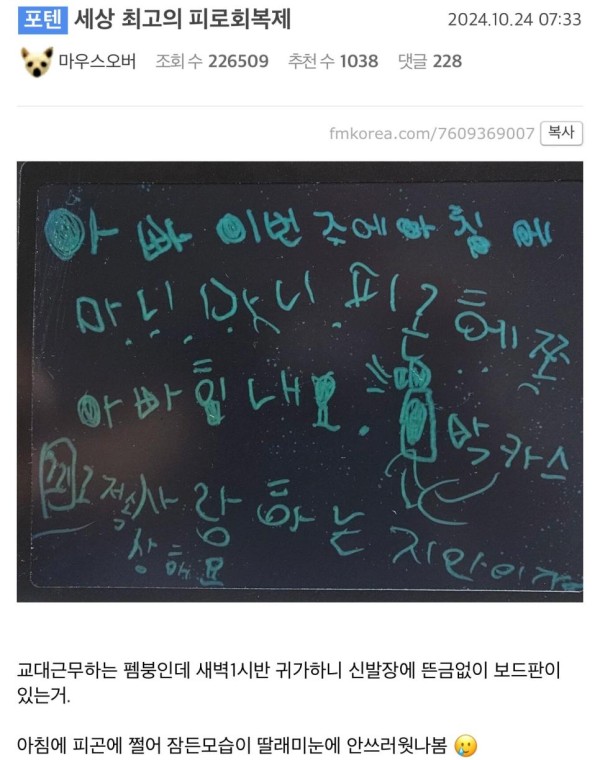 포텐 세상 최고의 피로회복제 2024.10.24 07:33
마우스오버 조회 수 226509 추천 수 1038 댓글 228
fmkorea.com/7609369007 복사
아빠 이번 주에 아침에
마니 마니 피곤
아빠 힘내요. 박카스
사랑하는
교대근무하는 펨붕인데 새벽1시반 귀가하니 신발장에 뜬금없이 보드판이
있는거.
아침에 피곤에 쩔어 잠든모습이 딸래미눈에 안쓰러웟나봄 🥲